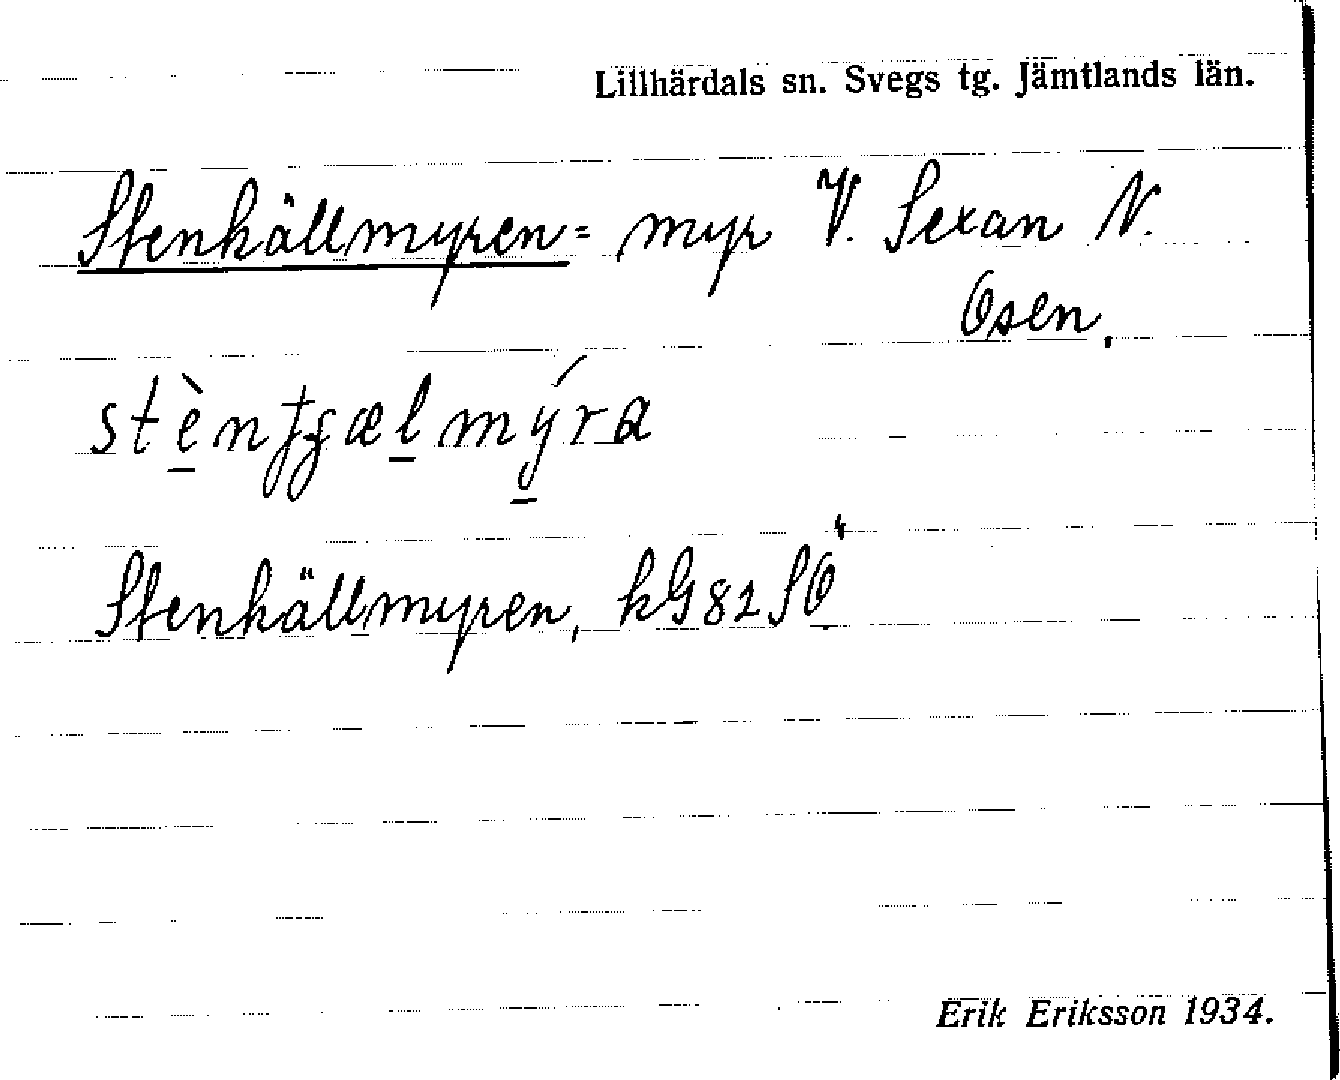 Lillhärdals sn. Svegs tg. Jämtlands län.
Stenkällmyren = myr V. Sexan N.
Osen.
stèntjælmýra
Stenkällmyren, kG 82 SO
Erik Eriksson 1934.